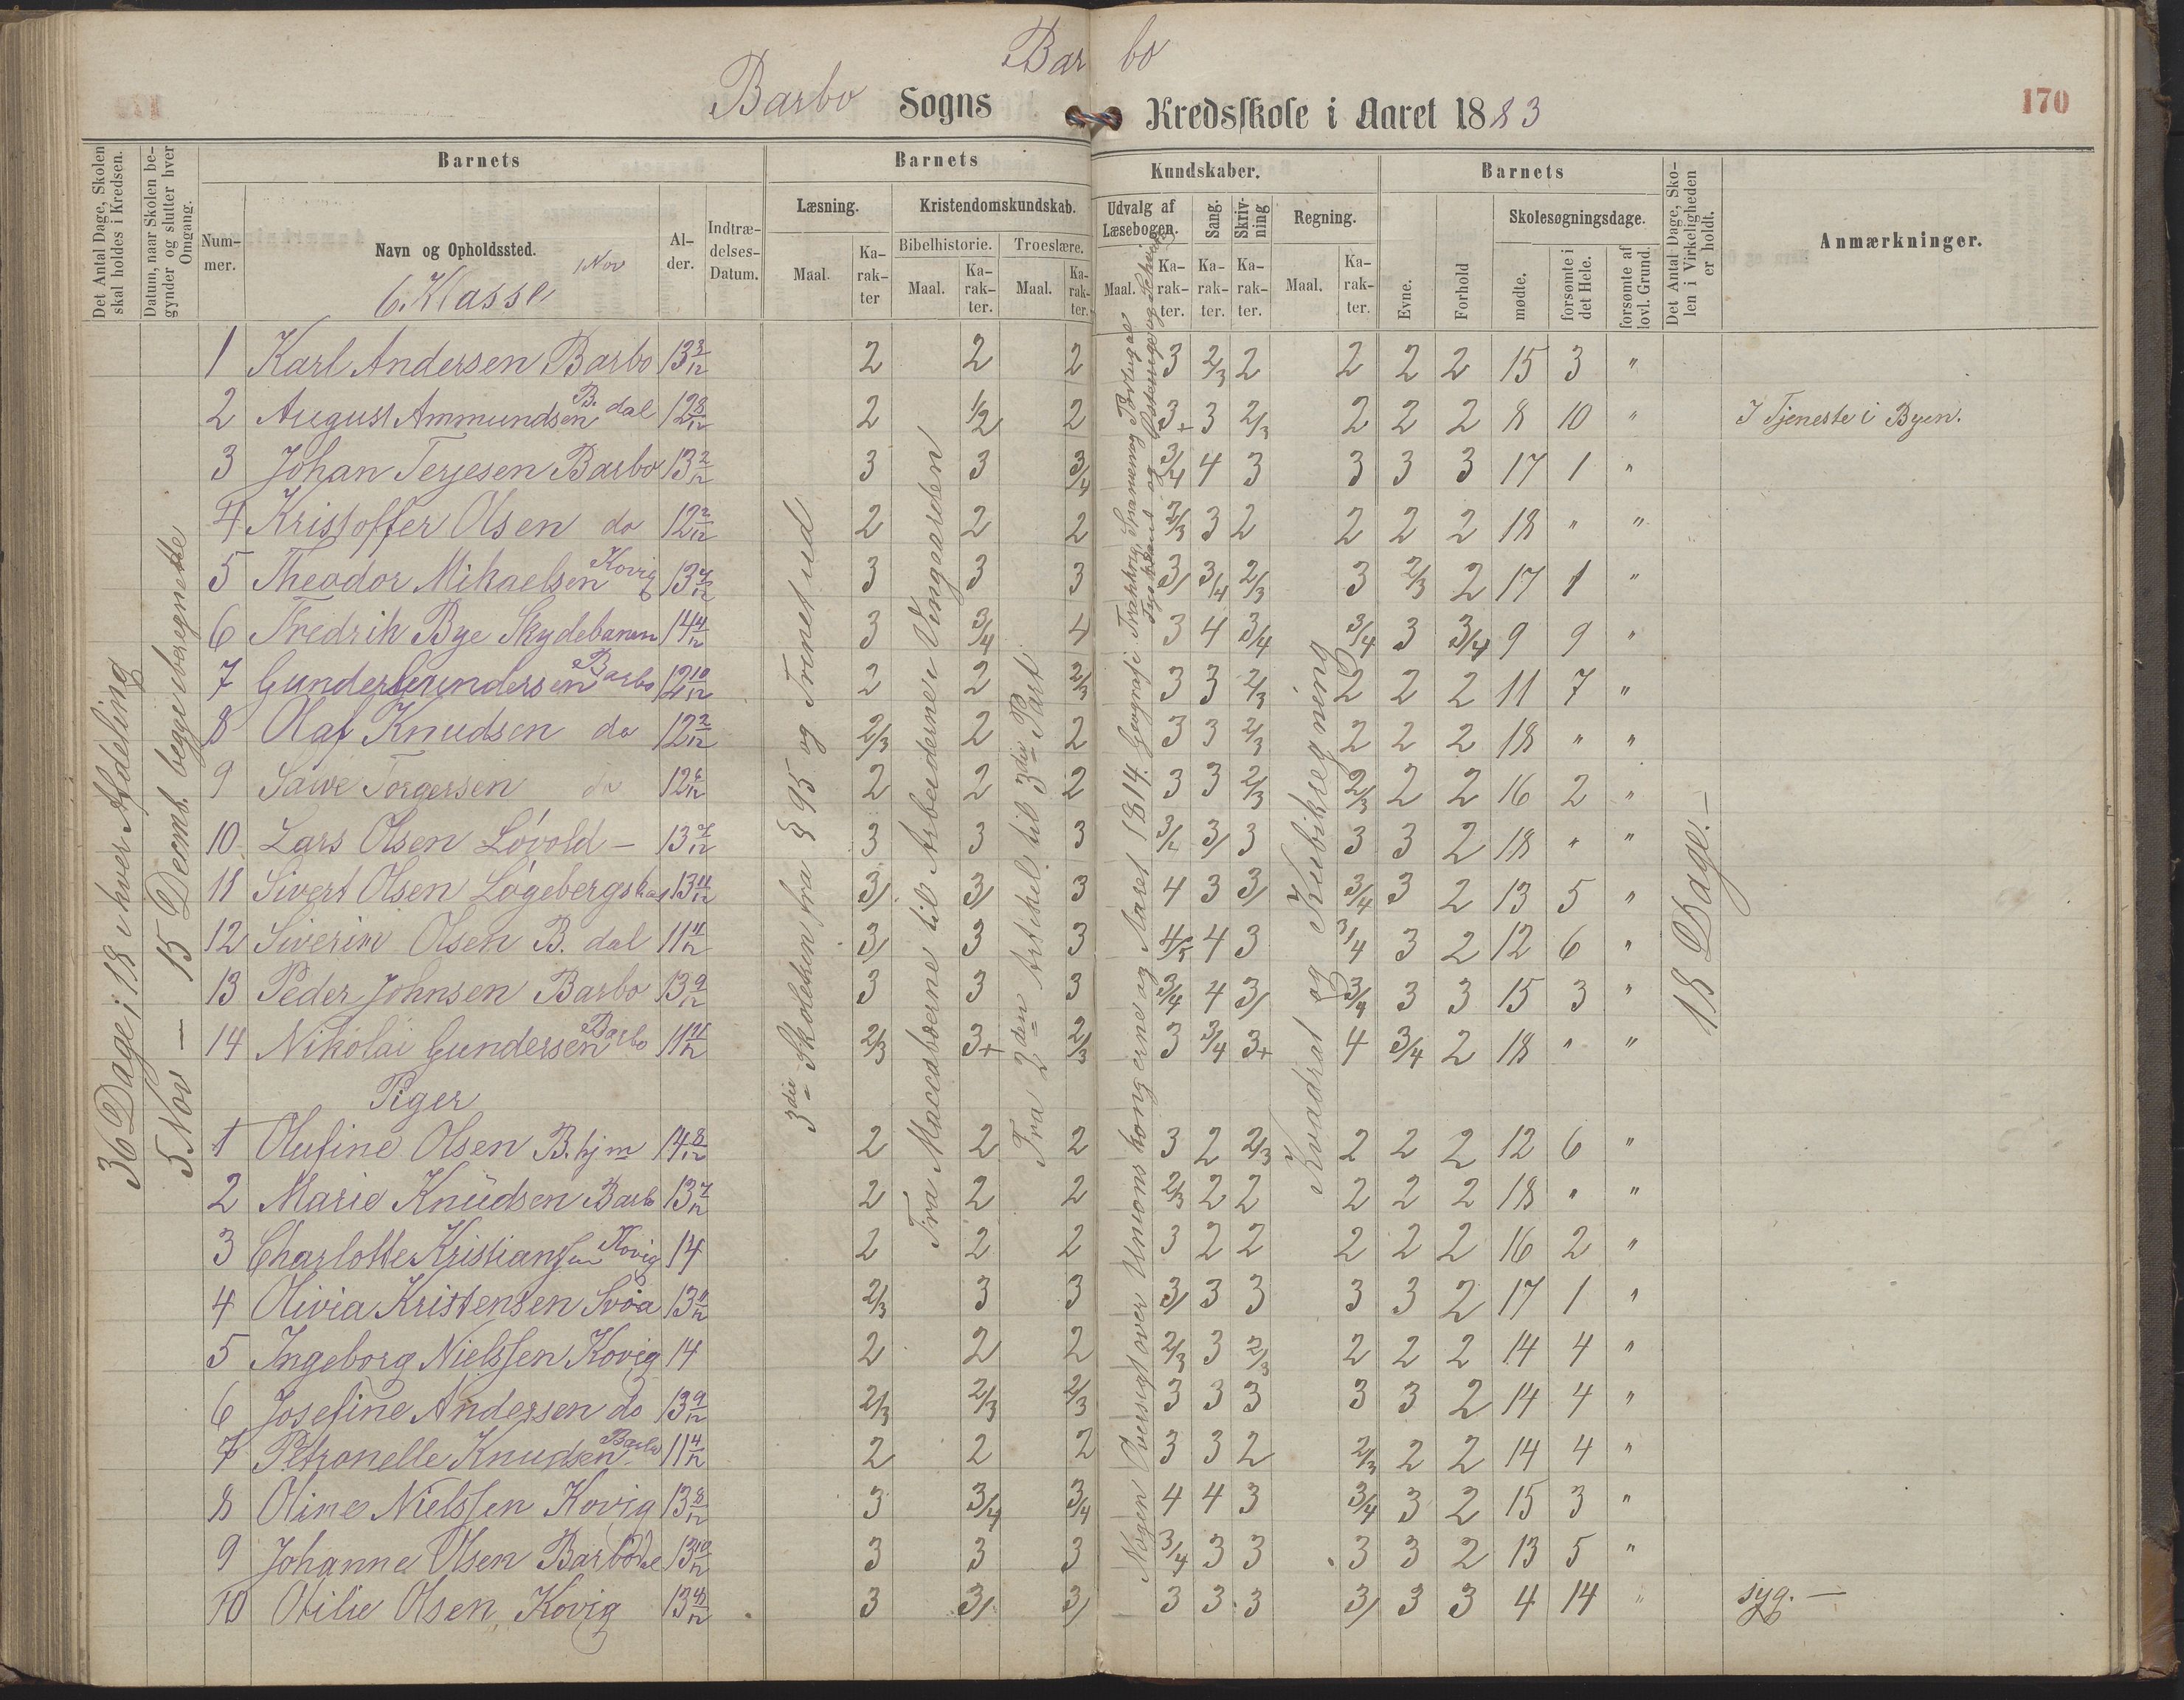 Bar bo
Barbo Sogns Kredsskole i Aaret 1883
170
Det Antal Dage, Skolen skal holdes i Kredsen.
Datum, naar Skolen begynder og slutter hver Omgang.
Barnets
Nummer.
Navn og Opholdssted.
6. Klasse
Nov
Alder.
Indtrædelses-Datum.
Barnets
Kundskaber.
Læsning.
Maal.
Karakter
Kristendomskundskab.
Bibelhistorie.
Maal.
Karakter.
Troeslære.
Maal.
Karakter.
Udvalg af Læsebogen.
Maal.
Karakter.
Sang.
Karakter.
Skrivning
Karakter.
Regning.
Maal.
Karakter.
Barnets
Evne.
Forhold
Skolesøgningsdage.
mødte.
forsømte i det Hele.
forsømte af lovl. Grund.
Det Antal Dage, Skolen i Virkeligheden er holdt.
Anmærkninger.
36 Dage, 18 i hver Afdeling
5 Nov — 15 Decmb. begge iberegnette
3die Skoletrin fra § 95 og Trinet ud
Fra Maccabæerne til Arbeiderne i Vingaarden
Fra 2den Artikel til 3die Part
Nogen Oversigt over Unionskongerne og Aaret 1814. Geografi Frankrig, Spanien og Portugal
Kvadrat og Kubikregning
18 Dage. —
1 Karl Andersen Barbo 13 3/12 2 2 2 3 2/3 2 2 2 2 15 3 "
2 August Ammundsen B. dal 12 8/12 2 1/2 2 3+ 3 2/3 2 2 2 8 10 " I Tjeneste i Byen.
3 Johan Terjesen Barbo 13 2/12 3 3 3/4 3/4 4 3 3 3 3 17 1 "
4 Kristoffer Olsen do 12 2/12 2 2 2 2/3 3 2 2 2 2 18 " "
5 Theodor Mikaelsen Kovig 13 7/12 3 3 3 3/ 3/4 2/3 3 2/3 2 17 1 "
6 Fredrik Bye Skydebanen 14 4/12 3 3/4 4 3 4 3/4 3/4 3 3/4 9 9 "
7 Gunder Gundersen Barbo 12 10/12 2 2 2/3 3 3 2/3 2 2 2 11 7 "
8 Olaf Knudsen do 12 2/12 2/3 2 2 3 3 2/3 2 2 2 18 " "
9 Sawe Torgersen do 12 6/12 2 2 2 3 3 2/3 2/3 2 2 16 2 "
10 Lars Olsen Lóvold — 13 7/12 3 3 3 3/ 3/ 3 3 3 2 18 " "
11 Sivert Olsen Lógebergskas 13 11/12 3/ 3/ 3 4 3 3/ 3/4 3 2 13 5 "
12 Siverin Olsen B. dal 11 11/12 3/ 3 3 4/5 4 3 3/4 3 2 12 6 "
13 Peder Johnsen Barbo 13 9/12 3 3 3 3/4 4 3/ 3/4 3 3 15 3 "
14 Nikolai Gundersen Barbo 11 11/12 2/3 3+ 2/3 3 3/4 3+ 4 3/4 2 18 " "
Piger
1 Olufine Olsen B. hjm 14 8/12 2 2 2 3 2 2/3 2 2 2 12 6 "
2 Marie Knudsen Barb 13 7/12 2 2 2 2/3 2 2 2 2 2 18 " "
3 Charlotte Kristiansen Kovig 14 2 2 2 3 2 2 2 2 2 16 2 "
4 Olivia Kristensen Svöa 13 11/12 2/3 3 3 3/ 3 3 3 3 2 17 1 "
5 Ingeborg Nielssen Kovig 14 2 2 2 2/3 3 2/3 2 2 2 14 4 "
6 Josefine Andersen do 13 9/12 2/3 2/3 2/3 3 3 3 3 3 2 14 4 "
7 Petronelle Knudsen Barbo 11 4/12 2 2 2 3 3 2 2/3 2 2 14 4 "
8 Oline Nielssen Kovig 13 8/12 3 3/4 3/4 4 4 3 3/4 3 2 15 3 "
9 Johanne Olsen Barbo 13 10/12 3 3 3 3/4 3 3 3 3 2 13 5 "
10 Otilie Olsen Kovig 13 3 3/ 3/ 3 3 3 3/ 3 3 4 14 " syg. —